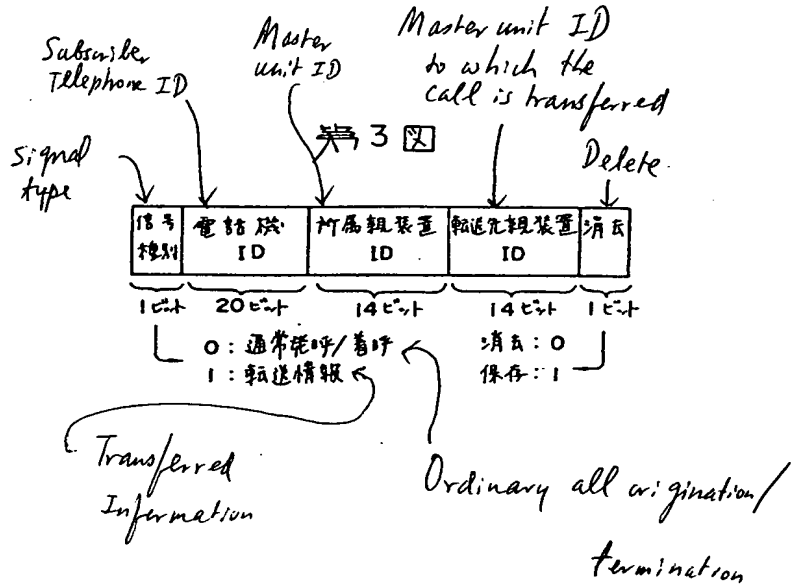 Subscriber
Telephone ID
Master
unit ID
Master unit ID
to which the
call is transferred
Signal
type
Delete
第3図
信号
種別
電話機
ID
所属親装置
ID
転送先親装置
ID
消去
1ビット
20ビット
14ビット
14ビット
1ビット
0:通常発呼/着呼
1:転送情報
消去:0
保存:1
Transferred
Information
Ordinary all origination/
termination